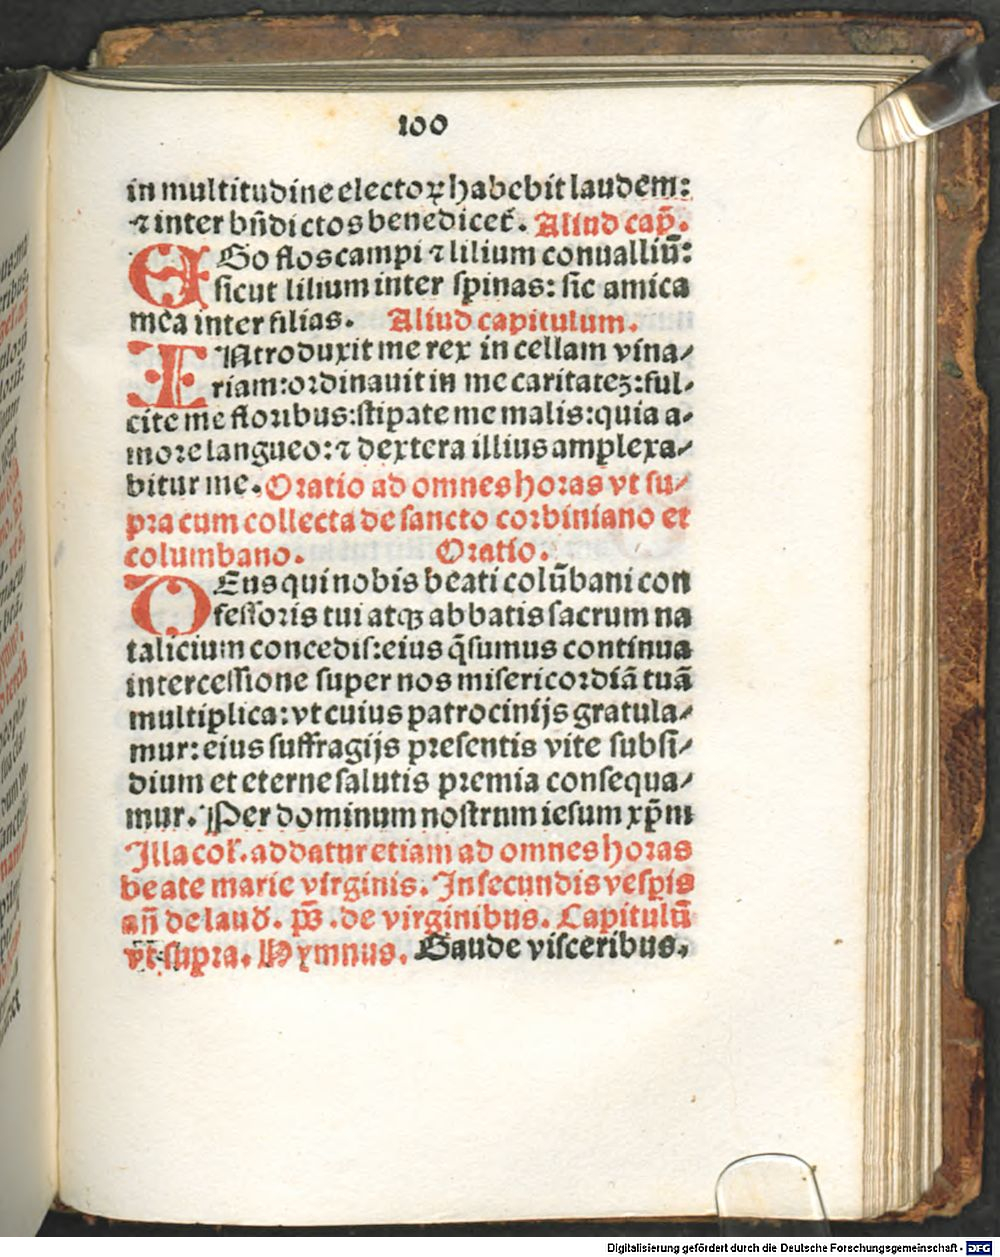 100
in multitudine electoꝝ habebit laudem:
⁊ inter bñdictos benedicet̃. Aliud cap̃.
EGo flos campi ⁊ lilium conualliū:
sicut lilium inter spinas: sic amica
mea inter filias. Aliud capitulum.
INtroduxit me rex in cellam vina⸗
riam: ordinauit in me caritatez: ful⸗
cite me floribus: stipate me malis: quia a⸗
more langueo: ⁊ dextera illius amplexa⸗
bitur me. Oratio ad omnes horas vt su⸗
pra cum collecta de sancto corbiniano et
columbano. Oratio.
DEus qui nobis beati colūbani con
fessoris tui atqꝫ abbatis sacrum na
talicium concedis: eius q̃sumus continua
intercessione super nos misericordiā tuā
multiplica: vt cuius patrocinijs gratula⸗
mur: eius suffragijs presentis vite subsi⸗
dium et eterne salutis premia consequa⸗
mur. Per dominum nostrnm iesum xp̃m
Illa coɫ. addatur etiam ad omnes horas
beate marie virginis. In secundis vesp̃is
añ de laud̃. p̃s. de virginibus. Capitulū
vt supra. Hymnus. Gaude visceribus.
Digitalisierung gefördert durch die Deutsche Forschungsgemeinschaft - DFG